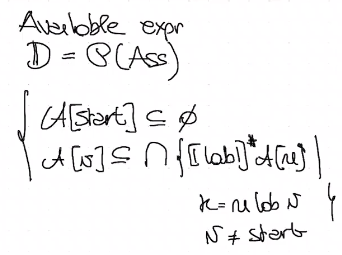 Available expr
𝔻 = 𝒫(Ass)
{ 𝒜[start] ⊆ ∅
𝒜[v] ⊆ ⋂ { ⟦lab⟧# 𝒜[u] |
k = u lab v }
v ≠ start